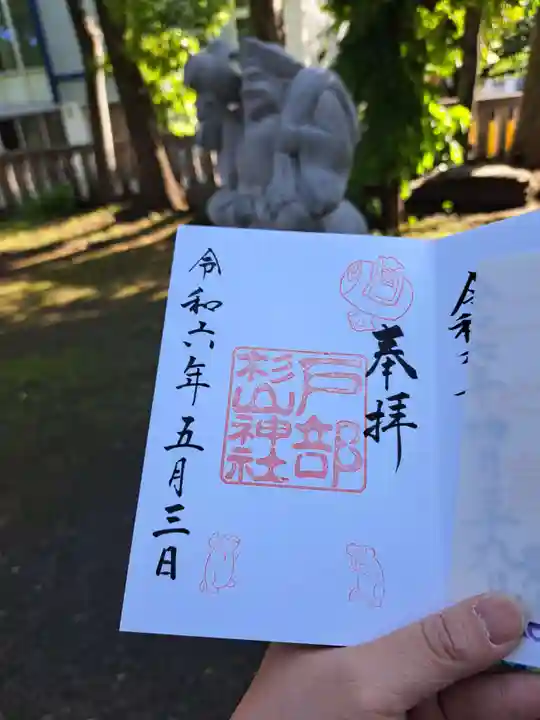 奉拝
戸部
杉山神社
令和六年五月三日
令和